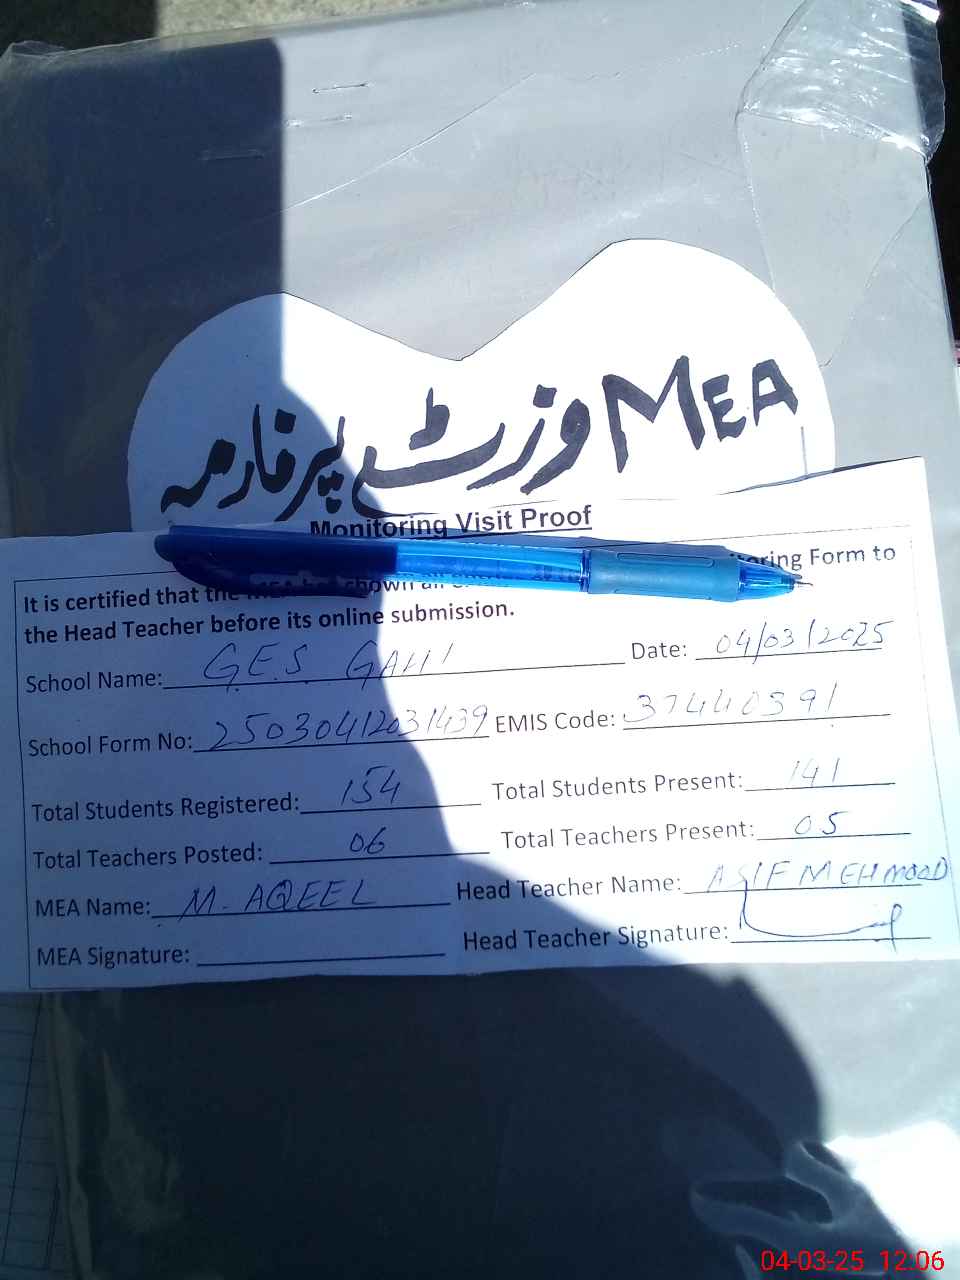 MEA وزٹ پرفارمہ
Monitoring Visit Proof
It is certified that the MEA has shown all Form to
the Head Teacher before its online submission.
School Name: G.E.S Date: 04/03/2025
School Form No: 25030412031439 EMIS Code: 37440391
Total Students Registered: 154 Total Students Present: 141
Total Teachers Posted: 06 Total Teachers Present: 05
MEA Name: M. AQEEL Head Teacher Name: ASIF MEHMOOD
MEA Signature: Head Teacher Signature:
04-03-25 12:06